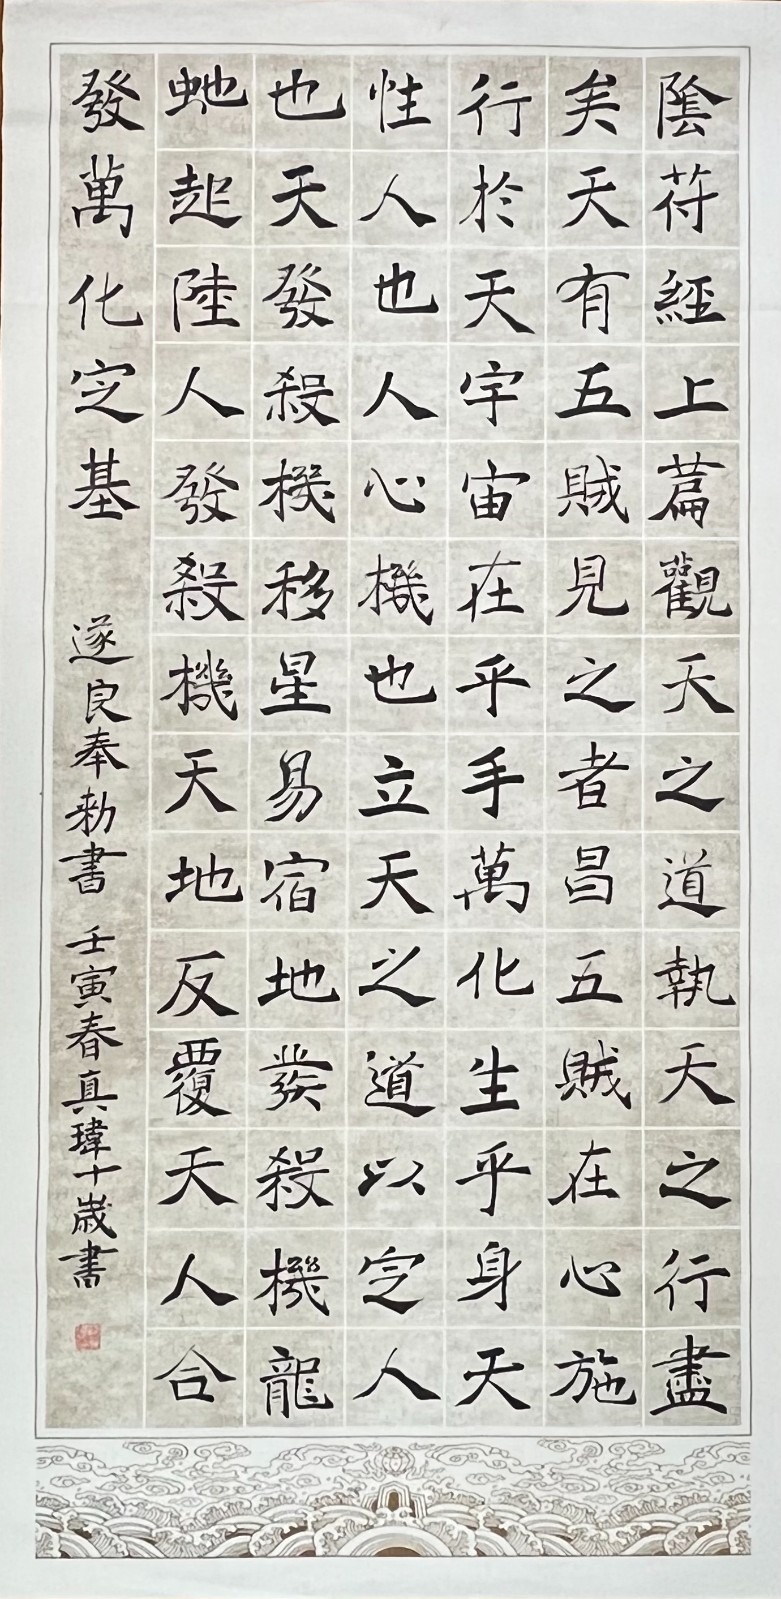 陰符經上篇觀天之道執天之行盡
矣天有五賊見之者昌五賊在心施
行於天宇宙在乎手萬化生乎身天
性人也人心機也立天之道以定人
也天發殺機移星易宿地發殺機龍
虵起陸人發殺機天地反覆天人合
發萬化定基
遂良奉勅書 壬寅春真瑋十歲書